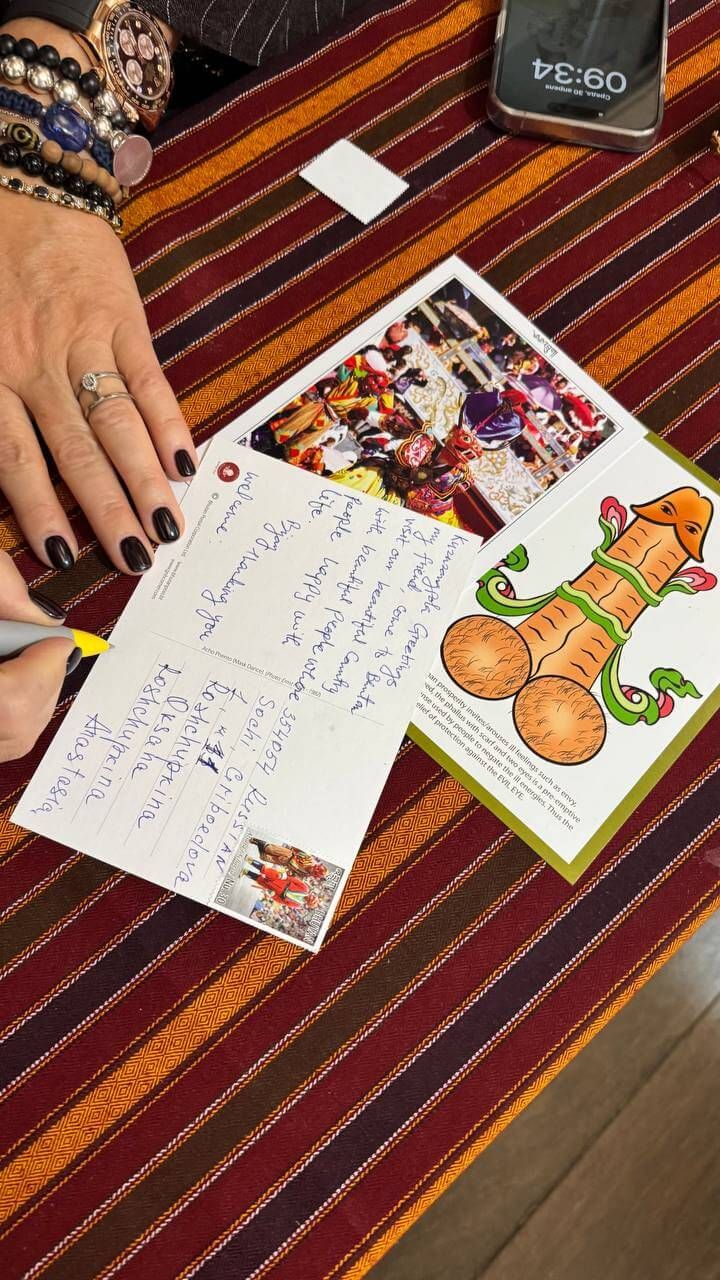 Среда, 30 апреля
09:34
Greetings
my friend, come to
visit our beautiful Country
with beautiful People
People happy with
life.
Thanking you
welcome.
© Bhutan Postal Corporation Ltd.
(Mask Dance)
354054 RussiAN
Sochi, Griboedova
Poshchupkina
Oksana
Poshchupkina
Anastasia
BHUTAN
Nu. 30
an prosperity invites/arouses ill feelings such as envy,
ed, the phallus with scarf and two eyes is a pre-emptive
nse used by people to negate the ill energies. Thus the
elief of protection against the EVIL EYE.